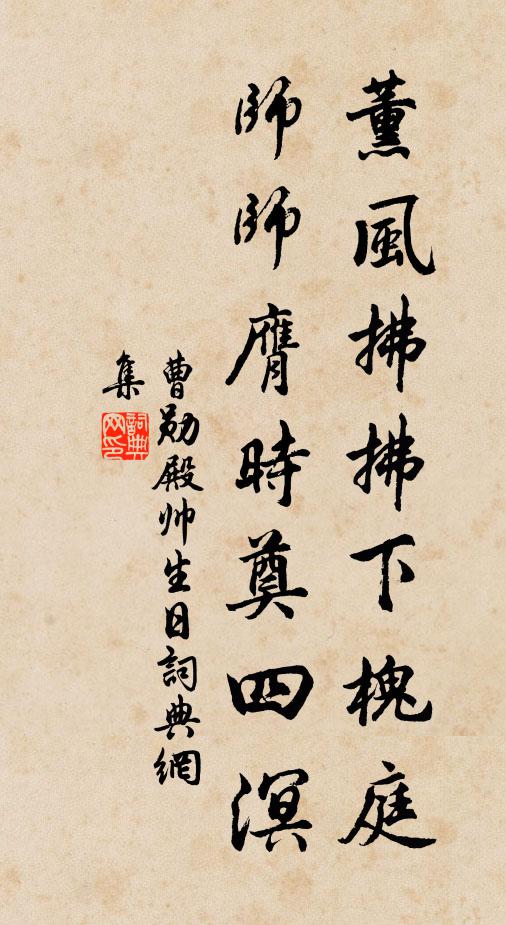 薰風拂拂下槐庭
師師膺時奠四溟
曹勛殿帅生日詞典網
集
詞典
网印